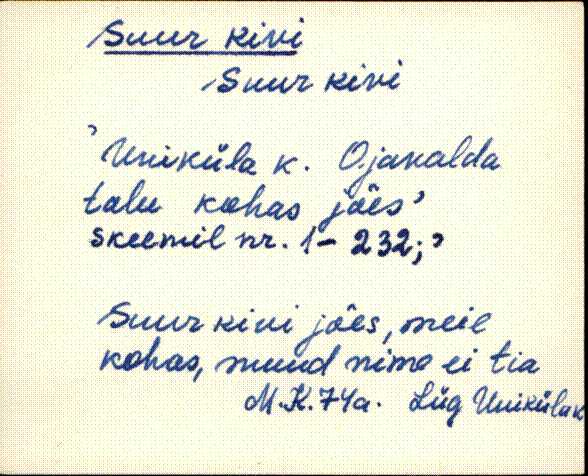 Suur kivi
Suur kivi
'Uniküla k. Ojavalda
talu kohas jões'
skeemil nr. 1-232;'
Suur kivi jões, meil
kohas, muud nime ei tia
M.K.74a. Lüg Uniküla k